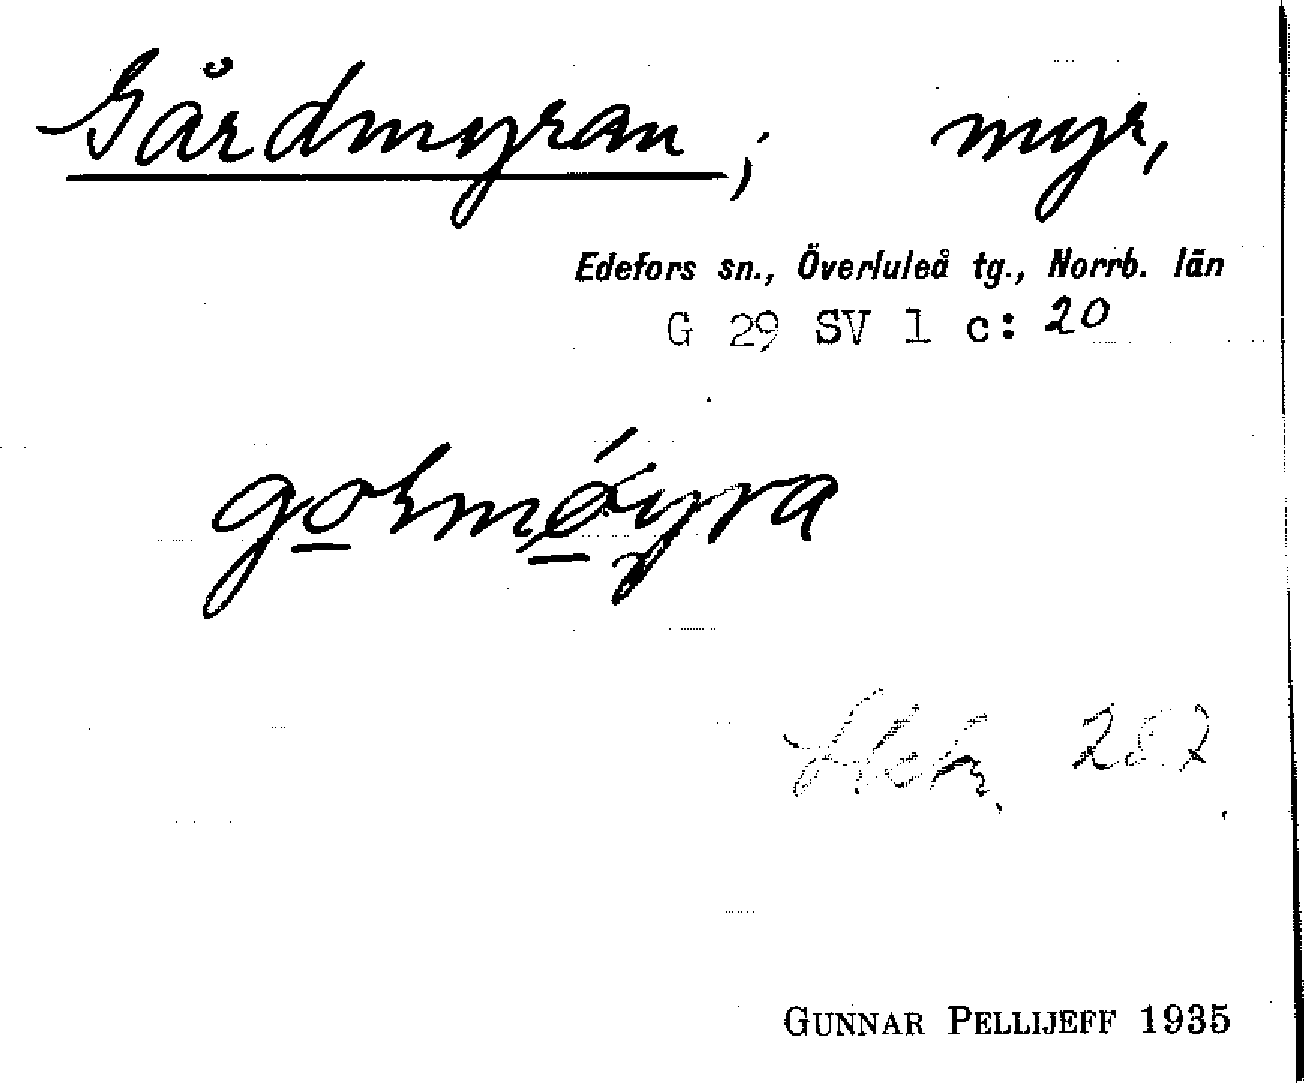 Gårdmyran, myr,
Edefors sn., Överluleå tg., Norrb. län
G 29 SV 1 c: 20
287
GUNNAR PELLIJEFF 1935